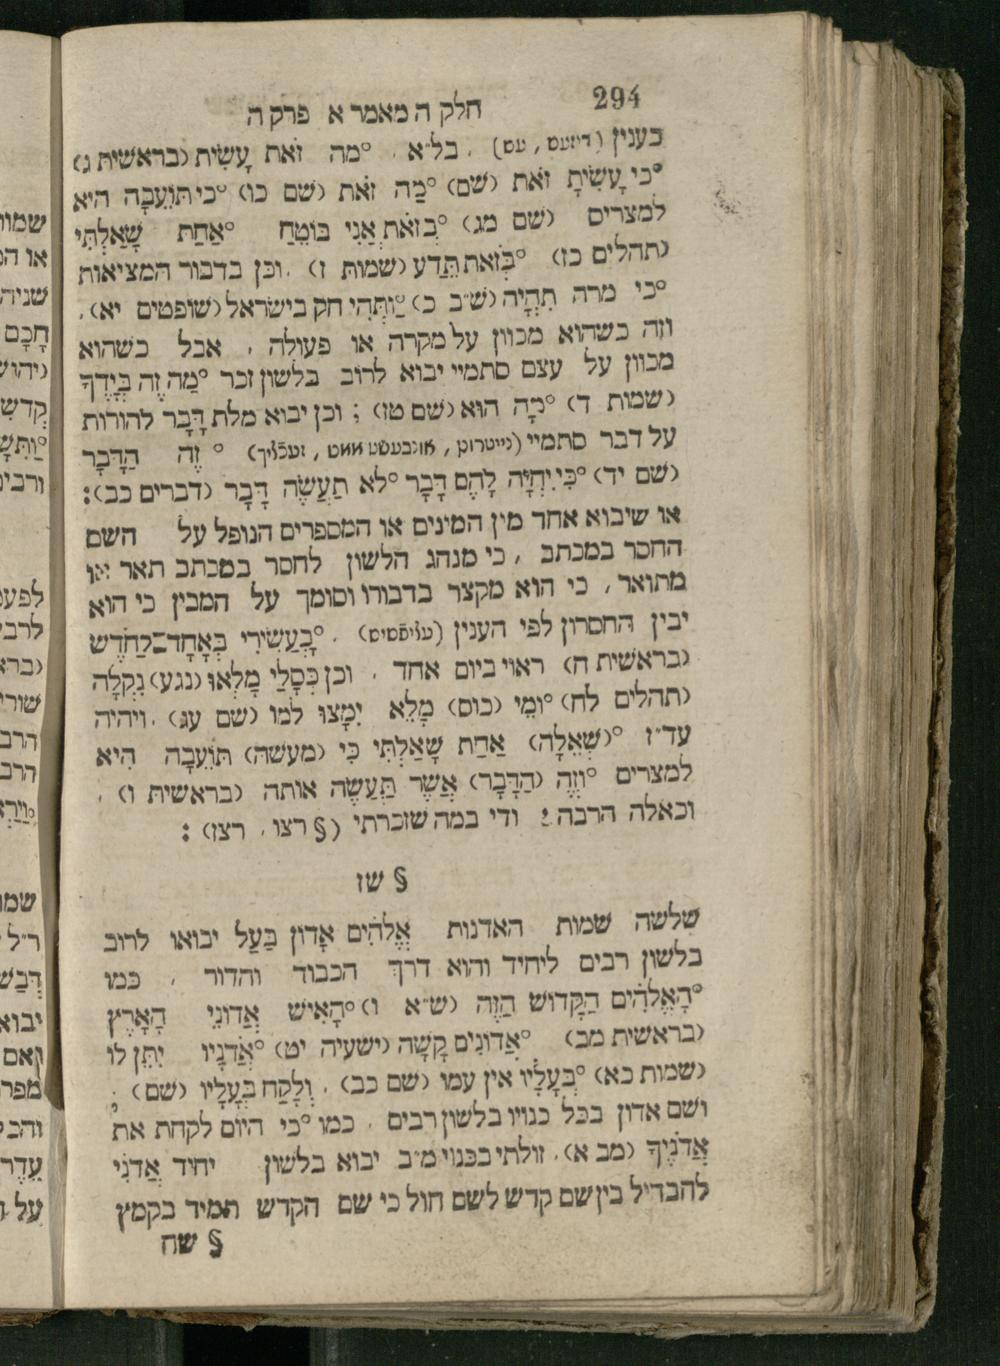 294
חלק ה מאמר א פרק ה
בענין (דיזעס, עס). בל״א. °מה זֹאת עָשִׂית (בראשית ג)
°כי עָשִׂיתָ זֹאת (שם) °מַה זֹאת (שם כו) °כי תוֹעֵבָה היא
למצרים (שם מג) °בְּזֹאת אֲנִי בוֹטֵחַ °אַחַת שָׁאַלְתִּי
(תהלים כז) °בְּזֹאת תֵּדַע (שמות ז). וכן בדבור המציאות
°כי מרה תִהְיֶה (ש״ב כ) °וַתְּהִי חק בישראל (שופטים יא).
וזה כשהוא מכוון על מקרה או פעולה, אבל כשהוא
מכוון על עצם סתמיי יבוא לרוב בלשון זכר °מַה זֶּה בְיָדֶךָ
(שמות ד) °מָה הוּא (שם טז); וכן יבוא מלת דָּבָר להורות
על דבר סתמיי (נייטרום, אונבעשטימט, זעכליך) °זֶה הַדָּבָר
(שם יד) °כִּי יִחְיֶּה לָהֶם דָּבָר °לא תַעֲשֶׂה דָּבָר (דברים כב):
או שיבוא אחד מין המינים או המספרים הנופל על השם
החסר במכתב, כי מנהג הלשון לחסר במכתב תאר או
מתואר, כי הוא מקצר בדבורו וסומך על המבין כי הוא
יבין החסרון לפי הענין (עליפסיס). °בָּעֲשִׂירִי בְּאֶחָד־לַחֹדֶשׁ
(בראשית ח) ראוי ביום אחד. וכן כְּסָלַי מָלְאוּ (נגע) נִקְלֶה
(תהלים לח) °וּמֵי (כוס) מָלֵא יִמָּצוּ למו (שם עג). ויהיה
עד״ז °(שְׁאֵלָה) אַחַת שָׁאַלְתִּי כִּי (מעשה) תּוֹעֵבָה הִיא
למצרים °וְזֶה (הַדָּבָר) אֲשֶׁר תַּעֲשֶׂה אותה (בראשית ו).
וכאלה הרבה: ודי במה שזכרתי (§ רצו. רצז):
§ שז
שלשה שמות האדנות אֱלֹהִים אָדוֹן בַּעַל יבואו לרוב
בלשון רבים ליחיד והוא דרך הכבוד והדור, כמו
°הָאֱלֹהִים הַקָּדוֹשׁ הַזֶּה (ש״א ו) °הָאִישׁ אֲדוֹנֵי הָאָרֶץ
(בראשית מב) °אֲדוֹנִים קָשֶׁה (ישעיה יט) °אֲדֹנָיו יִתֶּן לו
(שמות כא) °בְּעָלָיו אין עמו (שם כב). וְלָקַח בְּעָלָיו (שם);
ושם אדון בכל כנויו בלשון רבים. כמו °כי היום לקחת את
אֲדֹנֶיךָ (מב א). זולתי בכנוי מ״ב יבוא בלשון יחיד אֲדֹנִי
להבדיל בין שם קדש לשם חול כי שם הקדש תמיד בקמץ
§ שח